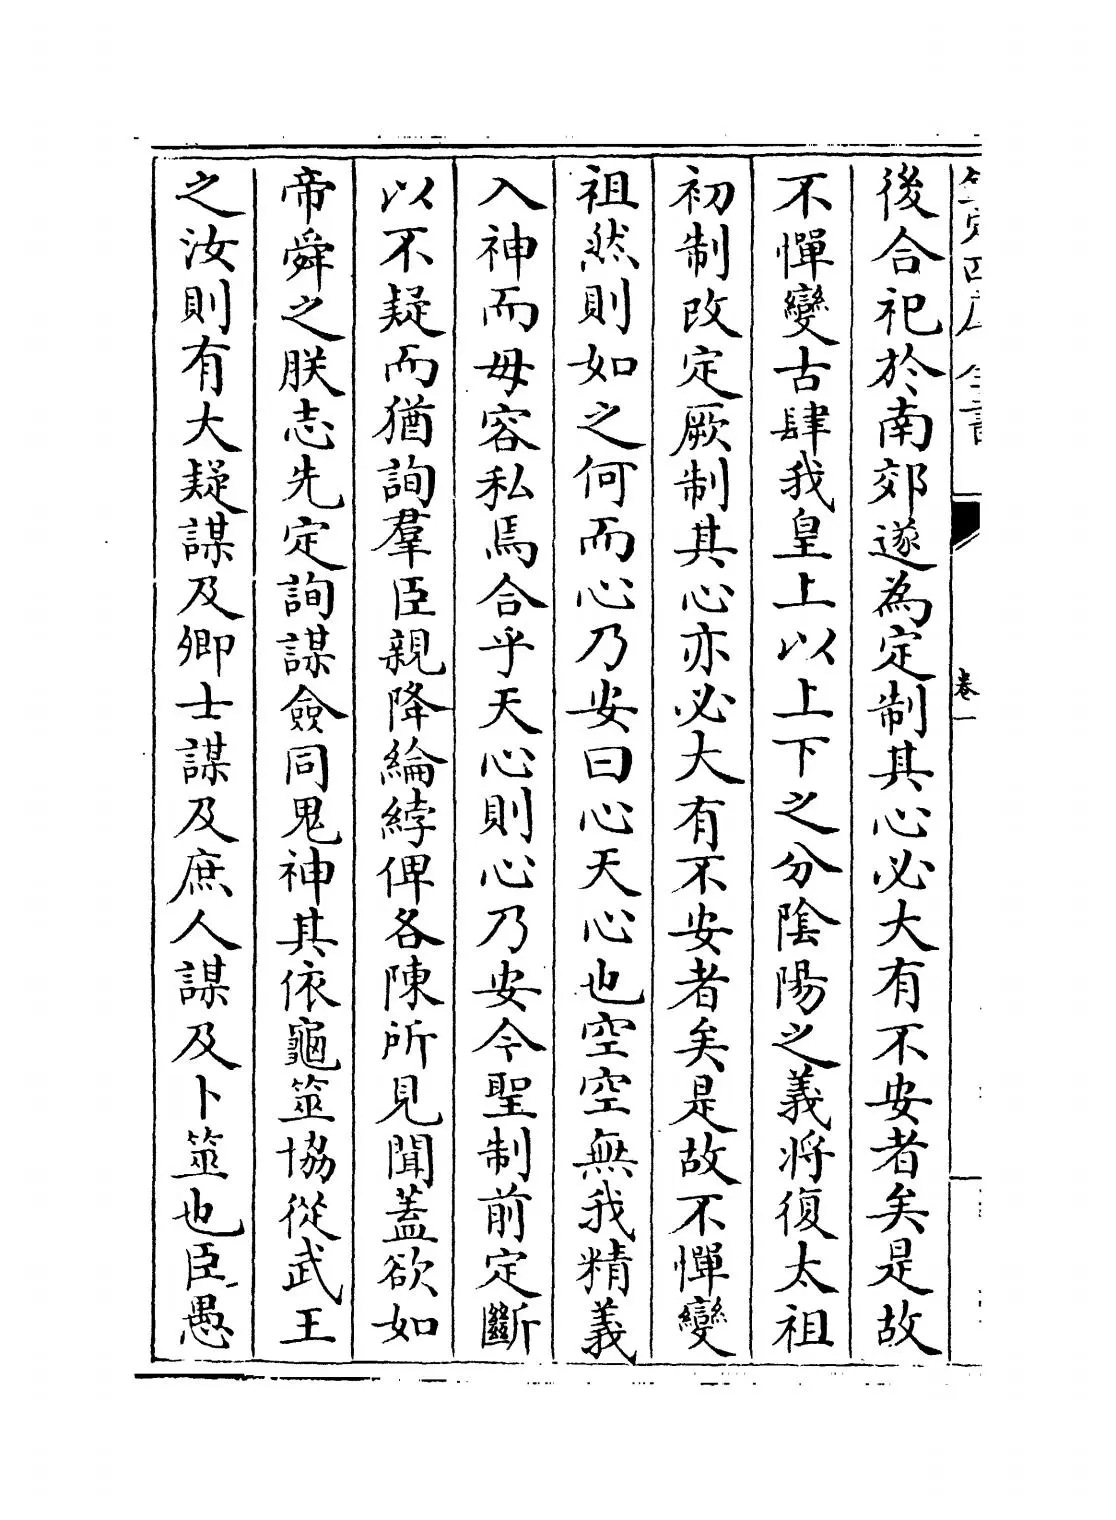 欽定四庫全書
卷一
後合祀於南郊遂為定制其心必大有不安者矣是故
不憚變古肆我皇上以上下之分陰陽之義將復太祖
初制改定厥制其心亦必大有不安者矣是故不憚變
祖然則如之何而心乃安曰心天心也空空無我精義
入神而毋容私焉合乎天心則心乃安今聖制前定斷
以不疑而猶詢羣臣親降綸綍俾各陳所見聞蓋欲如
帝舜之朕志先定詢謀僉同鬼神其依龜筮協從武王
之汝則有大疑謀及卿士謀及庶人謀及卜筮也臣愚